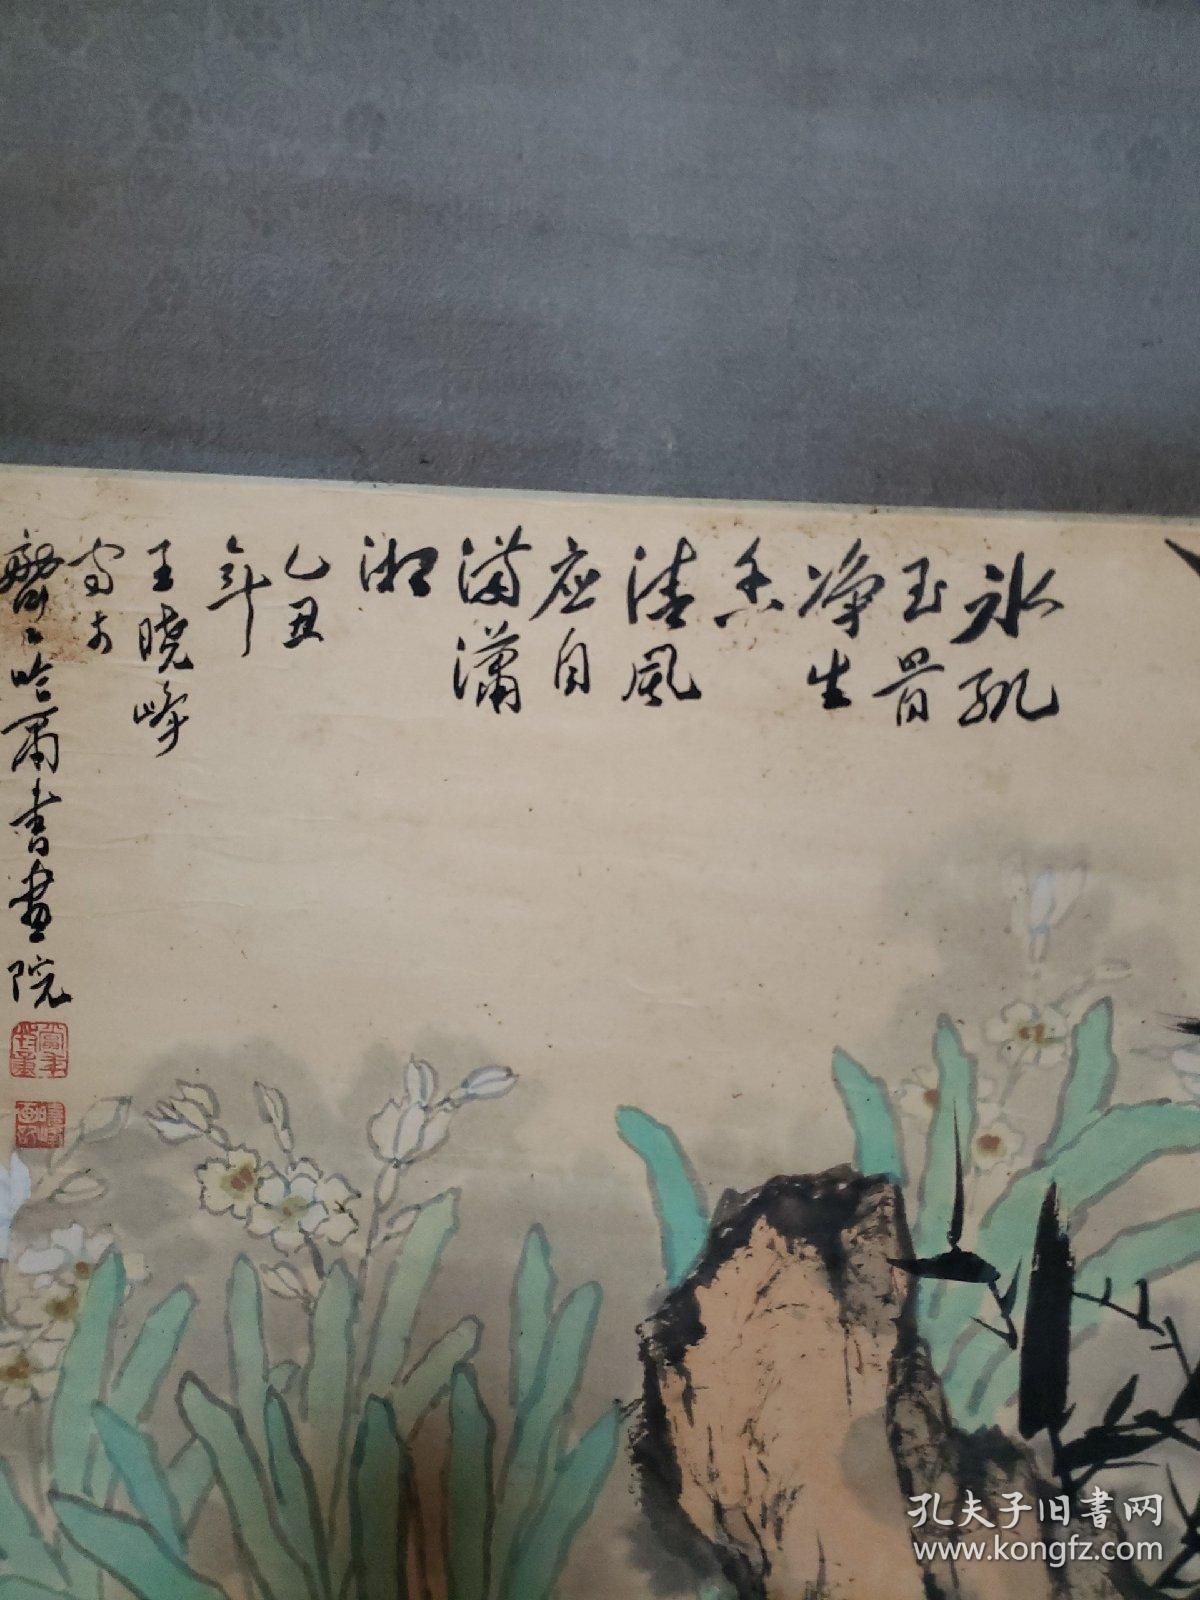 冰肌
玉骨
净生
香
清风
应自
满潇
湘
乙丑
年
王晓峰
写于
哈尔书画院
孔夫子旧书网
www.kongfz.com